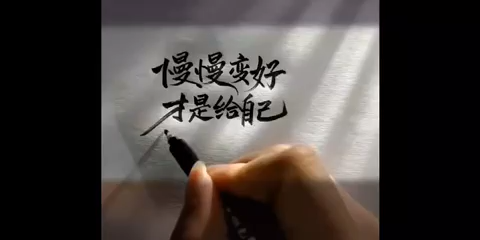 慢慢变好
才是给自己